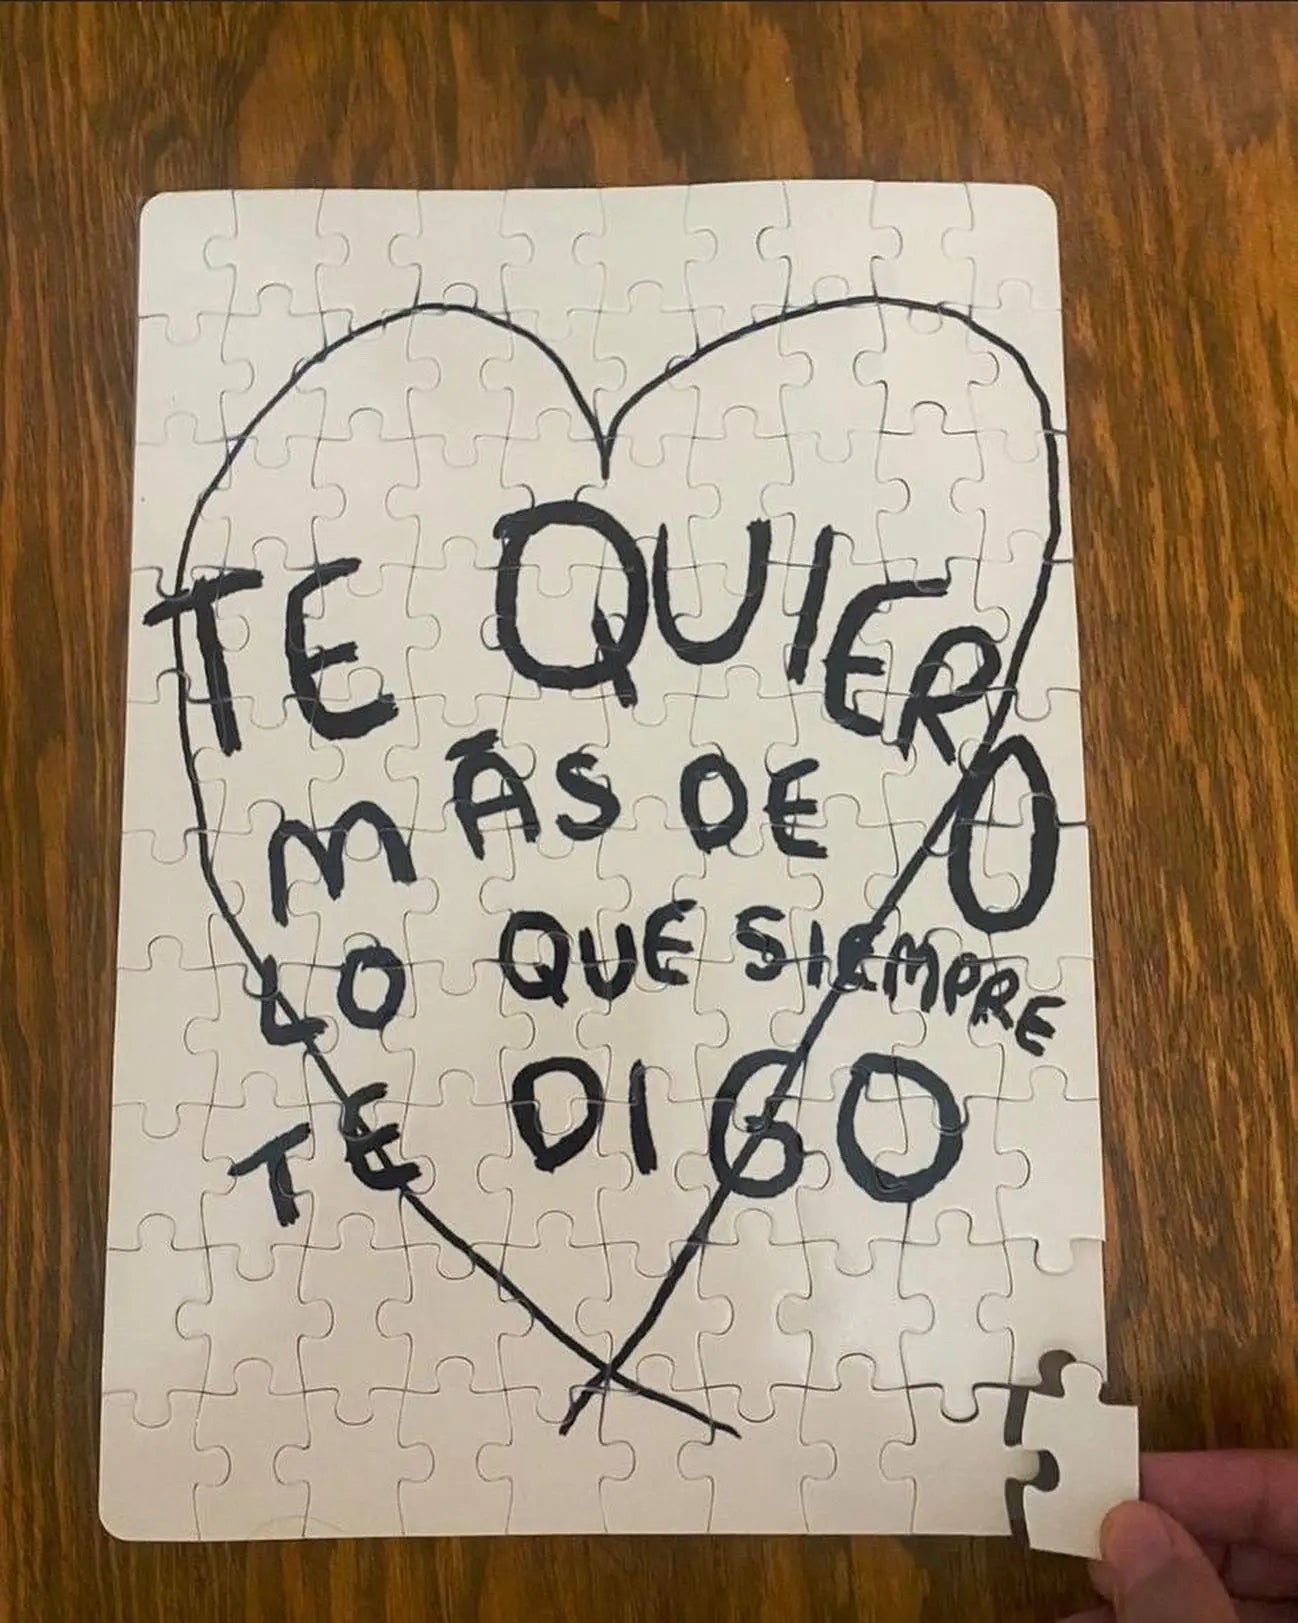 TE QUIERO
MÁS DE
LO QUE SIEMPRE
TE DIGO